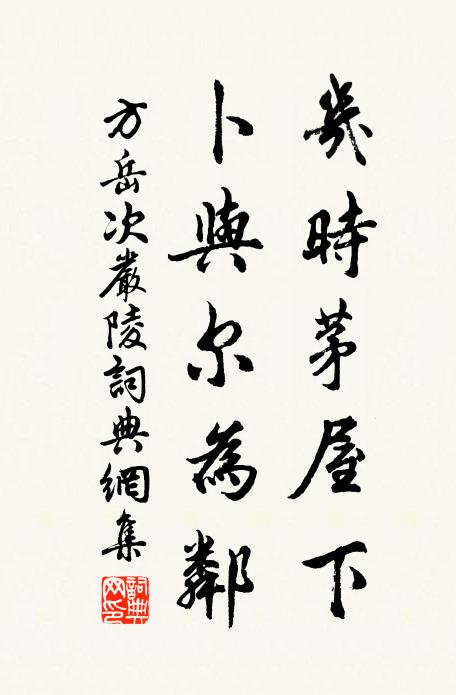 幾時茅屋下
卜與尔為鄰
方岳次嚴陵詞典網集
詞典网印